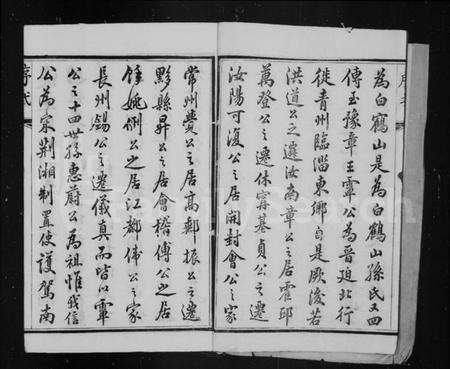 為白鶴山是為白鶴山孫氏又四
傳至豫章王寧公為晉廸北行
徙青州臨淄東鄉自是厥後若
洪道公之遷汝南章公之居霍邱
萬登公之遷休寧基貞公之遷
汝陽可復公之居開封會公之家
常州貴公之居高郵振公之遷
黟縣昇公之居會稽傅公之居
錢姚倒公之居江都佛公之家
長州錫公之遷儀真而皆以寧
公之十四世孫惠蔚公為祖惟我信
公為宋荆湘制置使護駕南
序